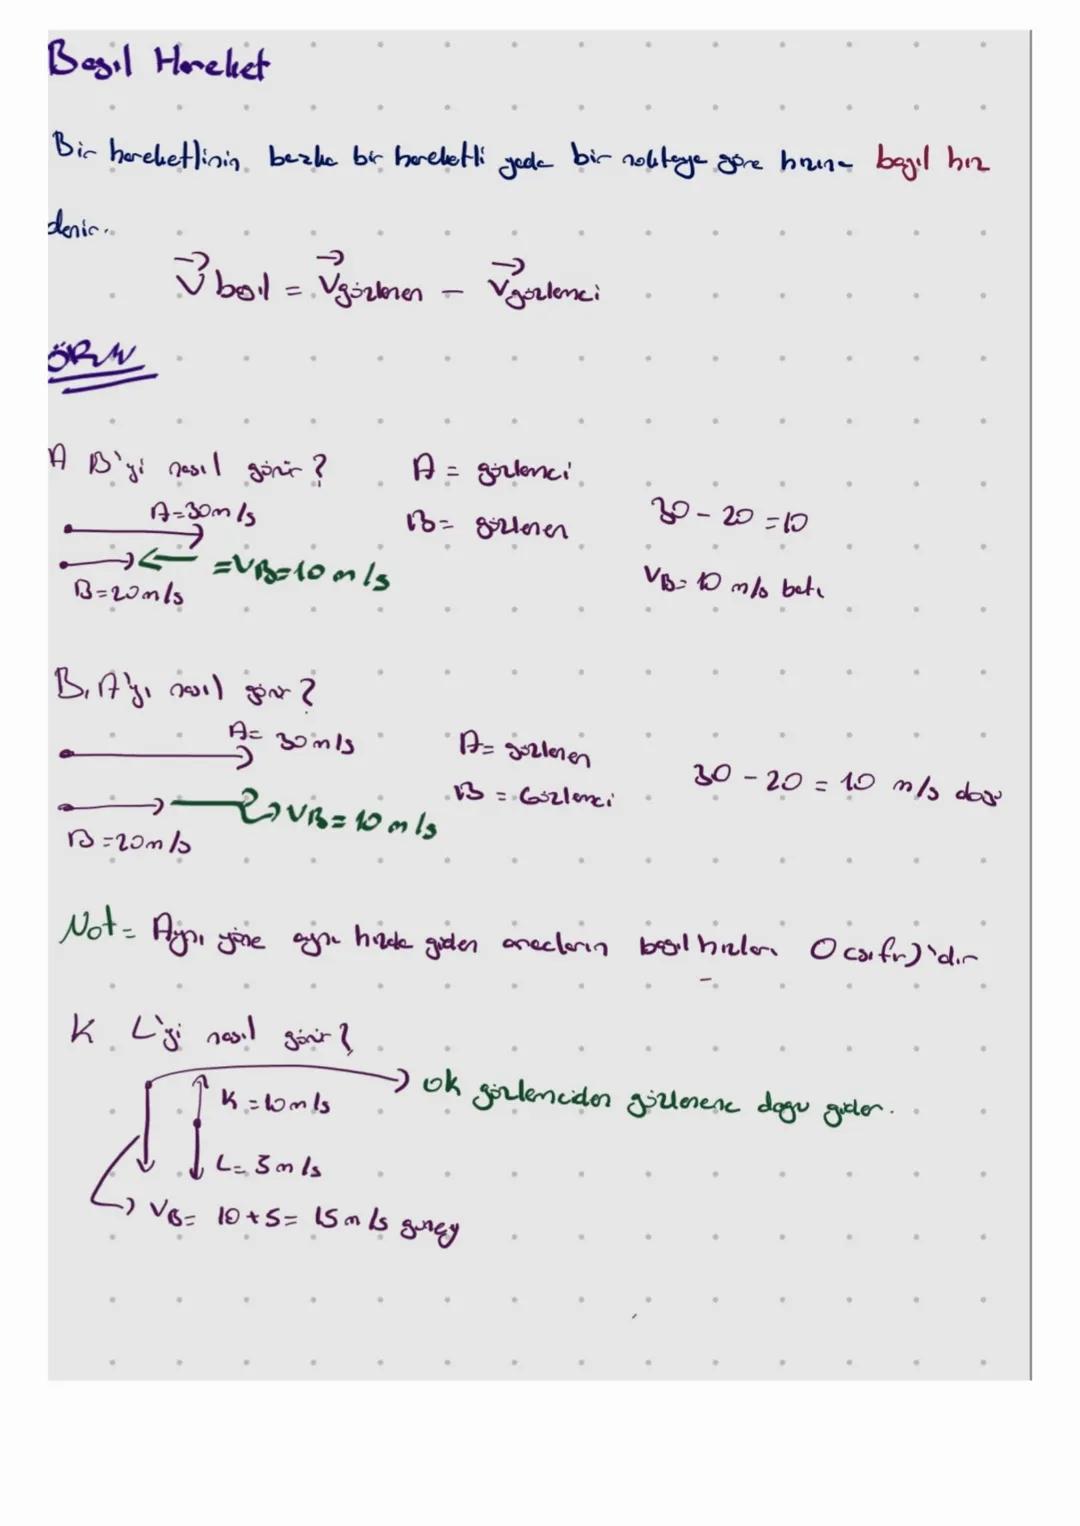 Bağıl Hareket
Bir hareketlinin, başka bir hareketli yada bir noktaya göre hızına bağıl hız
denir.
V bağıl = Vgözlenen - Vgözlenci
ÖRN
A B'yi nasıl görür? A = gözlenci
A=30m/s B= gözlenen 30-20=10
=VB=10 m/s
B=20m/s VB= 10 m/s batı
B, A'yı nasıl görür?
A= 30m/s A= gözlenen
B = Gözlenci 30-20 = 10 m/s doğu
VB= 10 m/s
B=20m/s
Not= Aynı yöne aynı hızda giden araçların bağıl hızları 0 (sıfır)'dır
K L'yi nasıl görür?
ok gözlenciden gözlenene doğru gider.
K=10m/s
L=5m/s
VB= 10+5= 15m/s güney